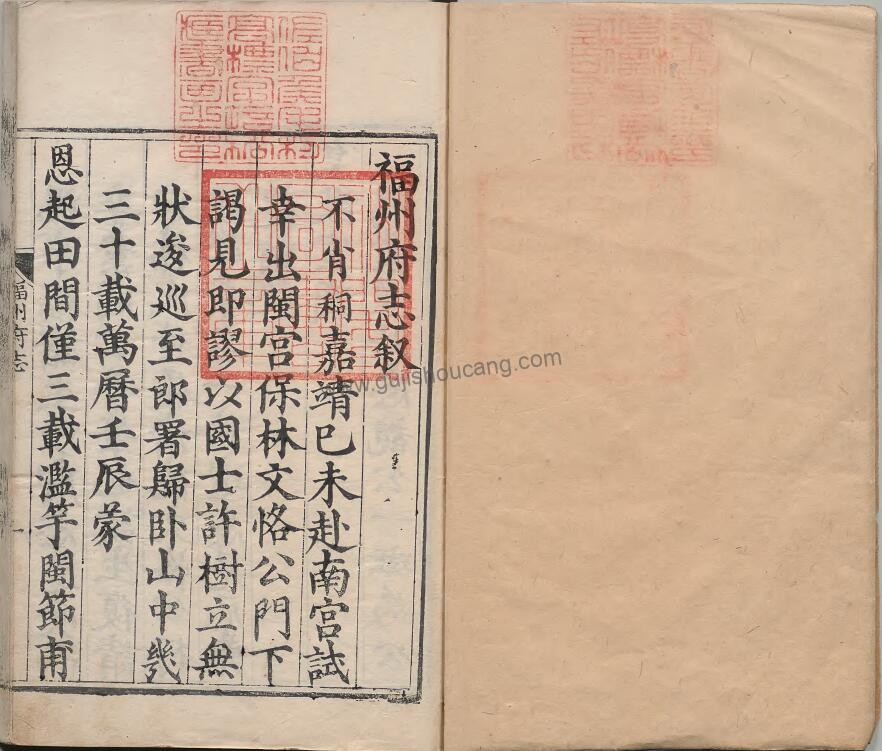 佐伯矦毛利
高標字培松
藏書画之印
福州府志叙
不肖秱嘉靖己未赴南宫試
幸出閩宫保林文恪公門下
謁見即謬以國士許樹立無
狀逡巡至郎署歸卧山中幾
三十載萬曆壬辰蒙
恩起田間僅三載濫竽閩節甫
福州府志
一
www.gujishoucang.com